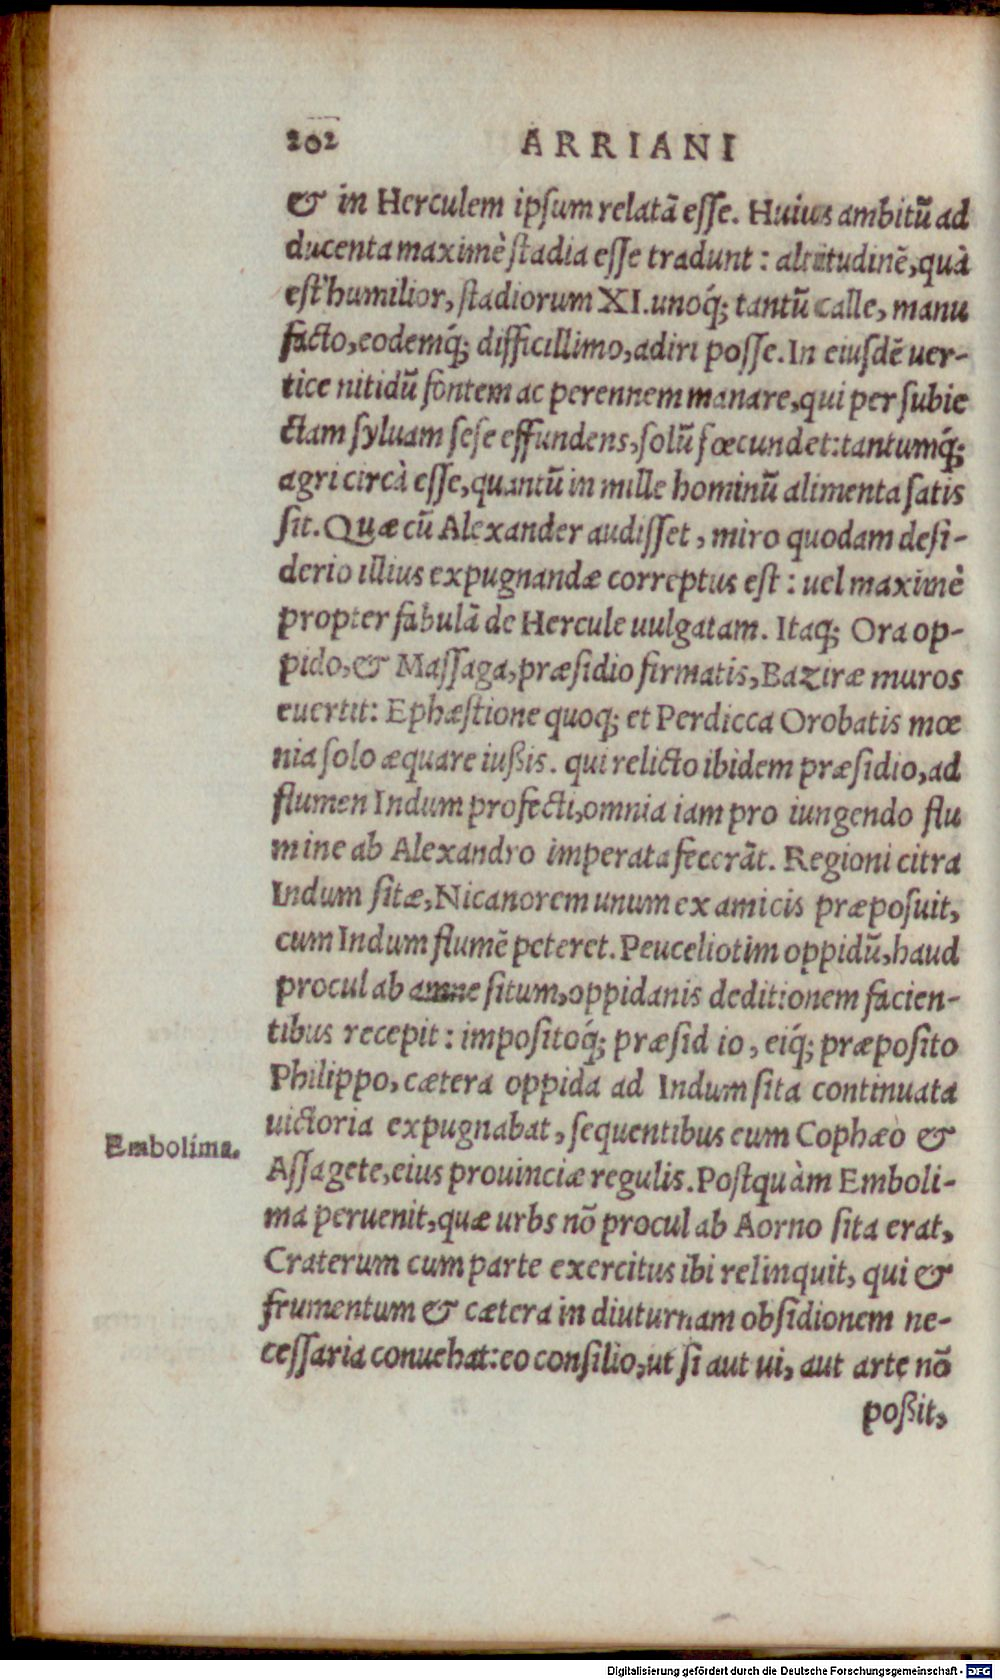 202 ARRIANI
& in Herculem ipſum relatā eſſe. Huius ambitū ad
ducenta maximè ſtadia eſſe tradunt : altitudinē, quà
eſt humilior, ſtadiorum XI. unoq́; tantū calle, manu
facto, eodemq́; difficillimo, adiri poſſe. In eiuſdē uer-
tice nitidū fontem ac perennem manare, qui per ſubie
ctam ſyluam ſeſe effundens, ſolū fœcundet: tantumq́;
agri circà eſſe, quantū in mille hominū alimenta ſatis
ſit. Quæ cū Alexander audiſſet, miro quodam deſi-
derio illius expugnandæ correptus eſt : uel maximè
propter fabulā de Hercule uulgatam. Itaq; Ora op-
pido, & Maſſaga, præſidio firmatis, Baziræ muros
euertit: Ephæſtione quoq; et Perdicca Orobatis mœ
nia ſolo æquare iußis. qui relicto ibidem præſidio, ad
flumen Indum profecti, omnia iam pro iungendo flu
mine ab Alexandro imperata fecerāt. Regioni citra
Indum ſitæ, Nicanorem unum ex amicis præpoſuit,
cum Indum flumē peteret. Peuceliotim oppidū, haud
procul ab amne ſitum, oppidanis deditionem facien-
tibus recepit : impoſitoq́; præſid io, eiq́; præpoſito
Philippo, cætera oppida ad Indum ſita continuata
uictoria expugnabat, ſequentibus eum Cophæo &
Aſſagete, eius prouinciæ regulis. Poſtquàm Emboli-
Embolima.
ma peruenit, quæ urbs nō procul ab Aorno ſita erat,
Craterum cum parte exercitus ibi relinquit, qui &
frumentum & cætera in diuturnam obſidionem ne-
ceſſaria conuehat: eo conſilio, ut ſi aut ui, aut arte nō
poßit,
Digitalisierung gefördert durch die Deutsche Forschungsgemeinschaft - DFG